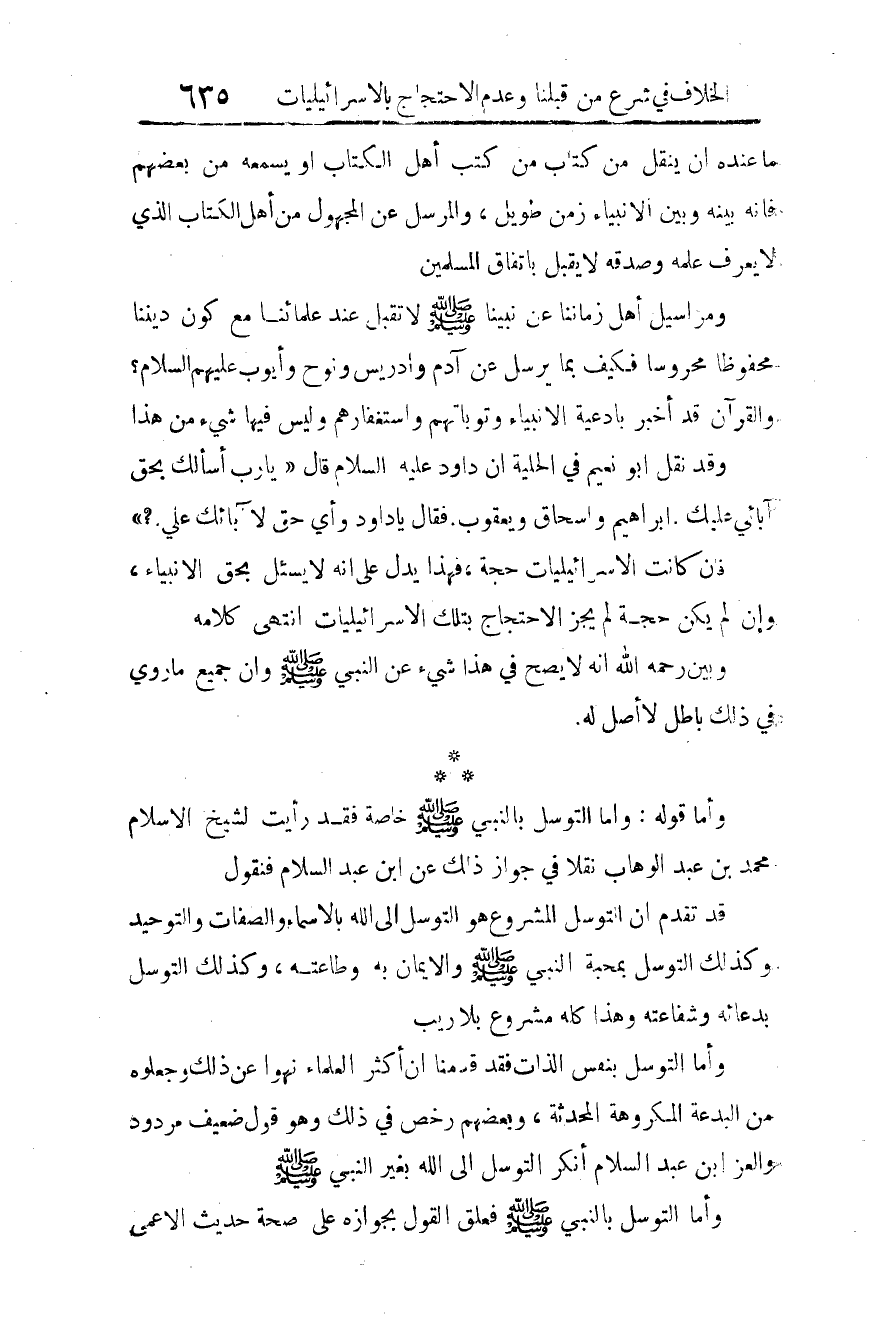 الخلاف في شرع من قبلنا وعدم الاحتجاج بالاسرائيليات ٦٣٥
ما عنده ان ينقل من كتاب من كتب أهل الكتاب او يسمعه من بعضهم
فانه بينه وبين الانبياء زمن طويل ، والمرسل عن المجهول من أهل الكتاب الذي
لا يعرف علمه وصدقه لا يقبل باتفاق المسلمين
ومراسيل أهل زماننا عن نبينا ﷺ لا تقبل عند علمائنا مع كون ديننا
محفوظا محروسا فكيف بما يرسل عن آدم وادريس ونوح وأيوب عليهم السلام؟
والقرآن قد أخبر بادعية الانبياء وتوباتهم واستغفارهم وليس فيها شيء من هذا
وقد نقل ابو نعيم في الحلية ان داود عليه السلام قال « يارب أسألك بحق
آبائي عليك . ابراهيم واسحاق ويعقوب. فقال ياداود وأي حق لآبائك علي.؟»
فان كانت الاسرائيليات حجة ، فهذا يدل على انه لا يسئل بحق الانبياء ،
وإن لم يكن حجة لم يجز الاحتجاج بتلك الاسرائيليات انتهى كلامه
وبين رحمه الله انه لا يصح في هذا شيء عن النبي ﷺ وان جميع ماروي
في ذلك باطل لا أصل له.
*
* *
وأما قوله : واما التوسل بالنبي ﷺ خاصة فقد رأيت لشيخ الاسلام
محمد بن عبد الوهاب نقلا في جواز ذلك عن ابن عبد السلام فنقول
قد تقدم ان التوسل المشروع هو التوسل الى الله بالاسماء والصفات والتوحيد
وكذلك التوسل بمحبة النبي ﷺ والايمان به وطاعته ، وكذلك التوسل
بدعائه وشفاعته وهذا كله مشروع بلا ريب
وأما التوسل بنفس الذات فقد قدمنا ان أكثر العلماء نهوا عن ذلك وجعلوه
من البدعة المكروهة المحدثة ، وبعضهم رخص في ذلك وهو قول ضعيف مردود
والعز ابن عبد السلام أنكر التوسل الى الله بغير النبي ﷺ
وأما التوسل بالنبي ﷺ فعلق القول بجوازه على صحة حديث الاعمى